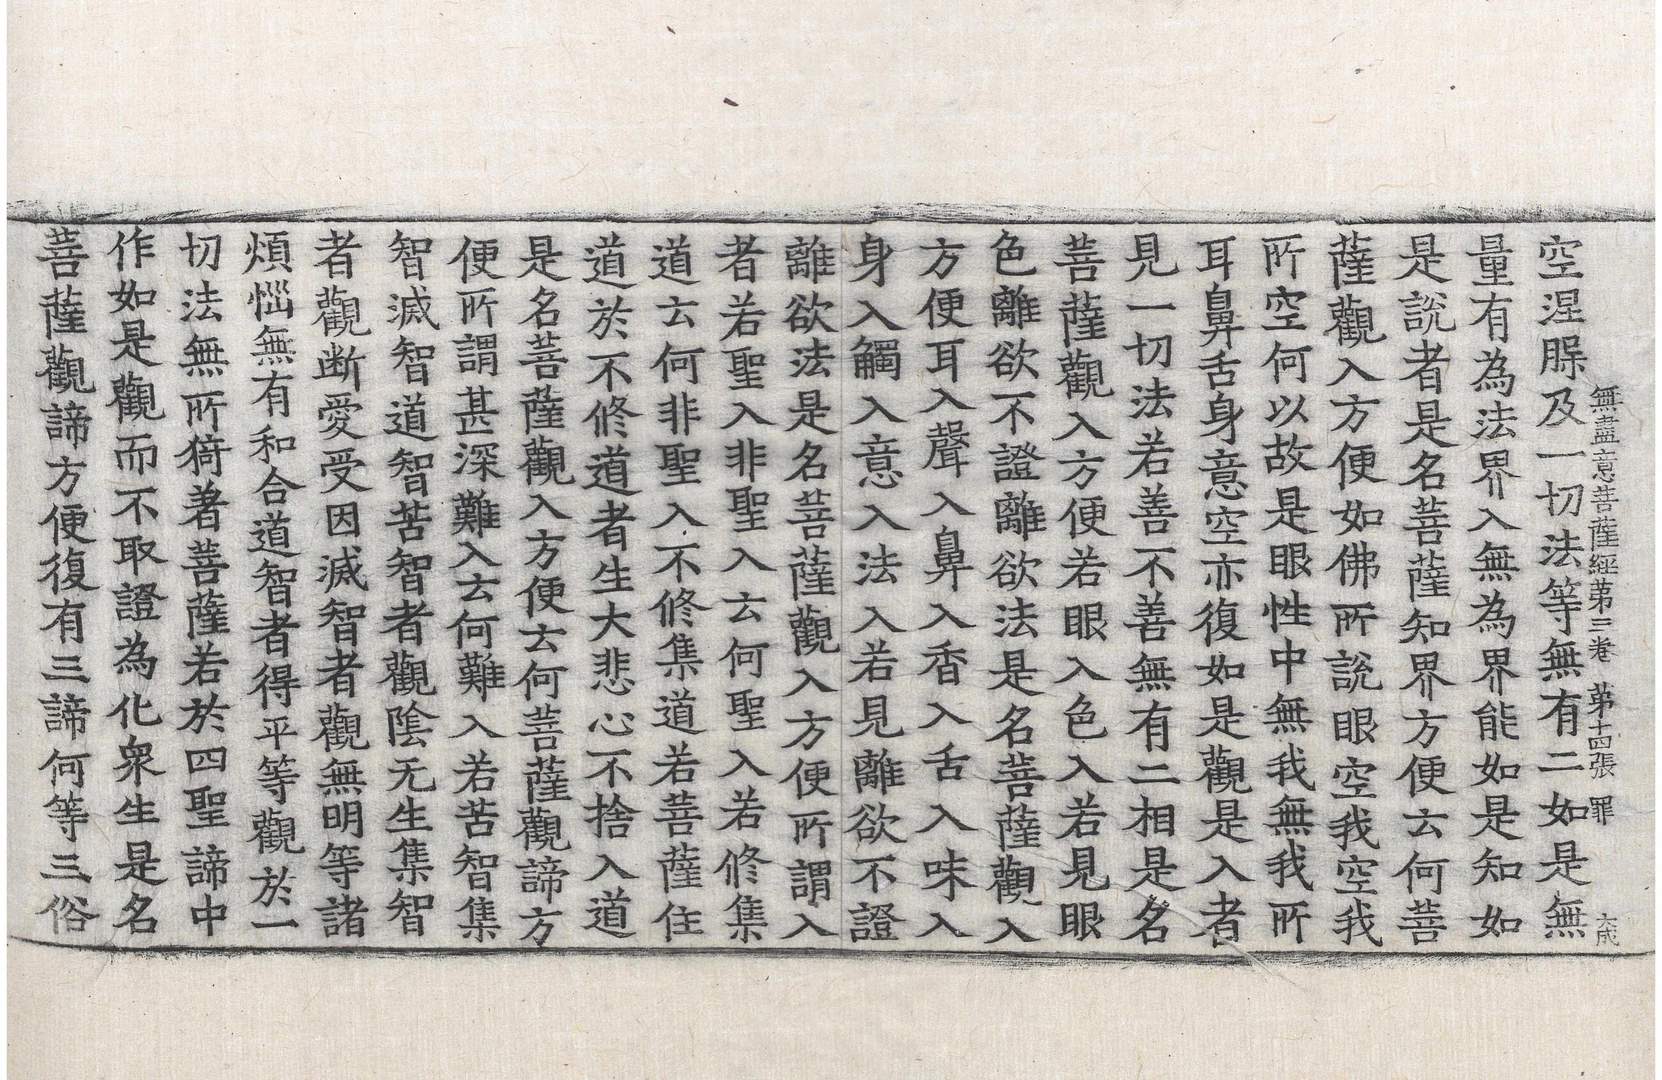 無盡意菩薩經第三卷 第十四張 罪 大成
空涅槃及一切法等無有二如是無
量有為法界入無為界能如是知如
是說者是名菩薩知界方便云何菩
薩觀入方便如佛所說眼空我空我
所空何以故是眼性中無我無我所
耳鼻舌身意空亦復如是觀是入者
見一切法若善不善無有二相是名
菩薩觀入方便若眼入色入若見眼
色離欲不證離欲法是名菩薩觀入
方便耳入聲入鼻入香入舌入味入
身入觸入意入法入若見離欲不證
離欲法是名菩薩觀入方便所謂入
者若聖入非聖入云何聖入若修集
道云何非聖入不修集道若菩薩住
道於不修道者生大悲心不捨入道
是名菩薩觀入方便云何菩薩觀諦方
便所謂甚深難入云何難入若苦智集
智滅智道智苦智者觀陰无生集智
者觀断愛受因滅智者觀無明等諸
煩惱無有和合道智者得平等觀於一
切法無所猗著菩薩若於四聖諦中
作如是觀而不取證為化衆生是名
菩薩觀諦方便復有三諦何等三俗